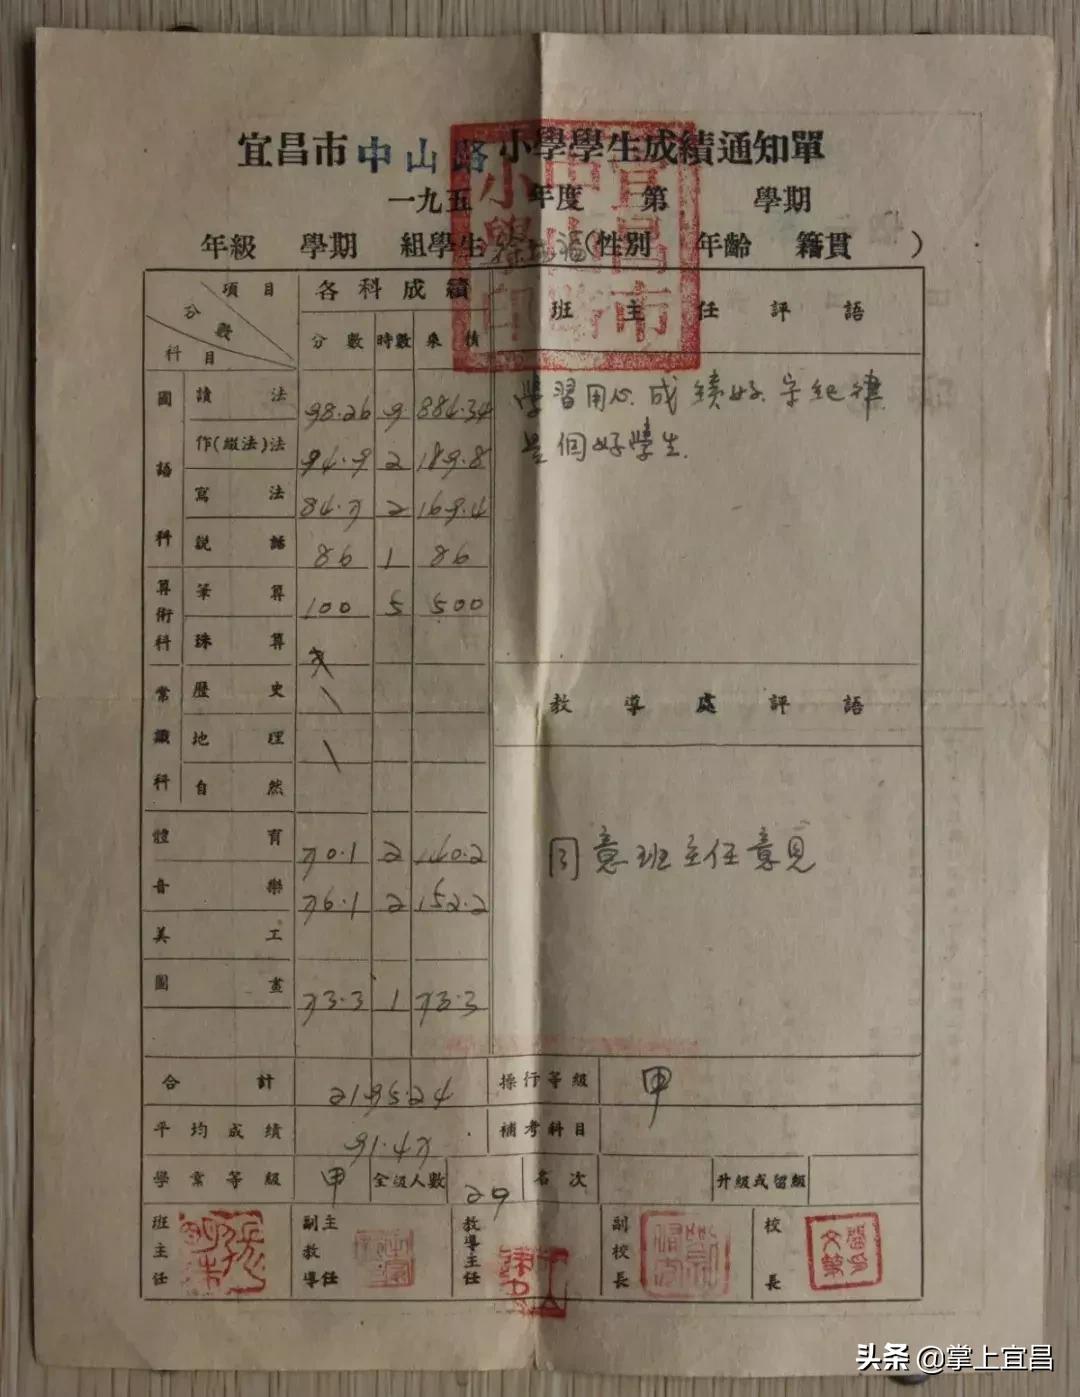 宜昌市中山路小學學生成績通知單
一九五 年度 第 學期
年級 學期 組學生徐 福(性別 年齡 籍貫 )
宜昌市中山路小學印
項目 分數 科目
各科成績
分數 時數 乘積
班主任評語
國語科
讀法 98.26 9 884.34
作(綴法)法 94.9 2 189.8
寫法 84.7 2 169.4
説話 86 1 86
算術科
筆算 100 5 500
珠算
常識科
歷史
地理
自然
體育 70.1 2 140.2
音樂 76.1 2 152.2
美工
圖畫 73.3 1 73.3
學習用心.成績好.守紀律
是個好學生.
教導處評語
同意班主任意見
合計 2195.24 操行等級 甲
平均成績 91.47 補考科目
學業等級 甲 全級人數 29 名次 升級或留級
班主任 副主任教導 教導主任 副校長 校長
头条 @掌上宜昌